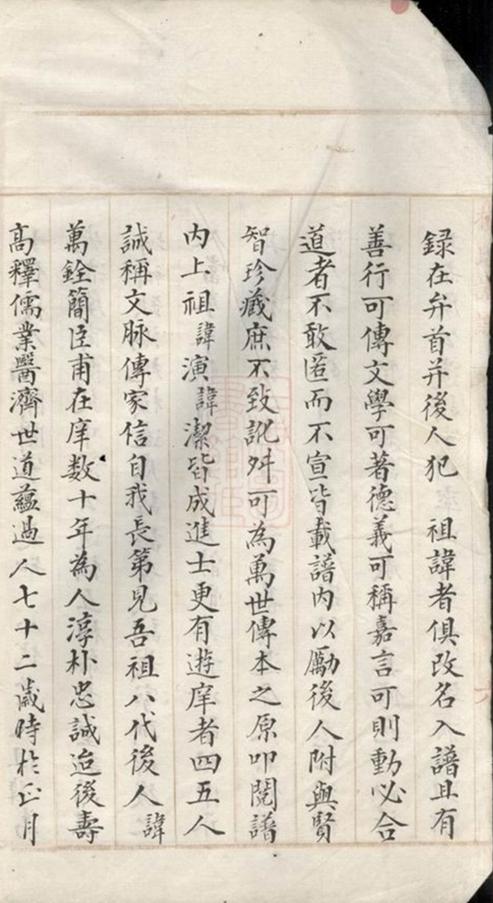 録在弁首并後人犯　祖諱者俱改名入譜且有
善行可傳文學可著德義可稱嘉言可則動必合
道者不敢匿而不宣皆載譜内以勵後人附與賢
智珍藏庶不致訛舛可為萬世傳本之原叩閲譜
内上祖諱演諱潔皆成進士更有遊庠者四五人
誠稱文脉傳家信自我長第見吾祖八代後人諱
萬銓簡臣甫在庠数十年為人淳朴忠誠迨後壽
高釋儒業醫濟世道蘊過人七十二歳時於正月